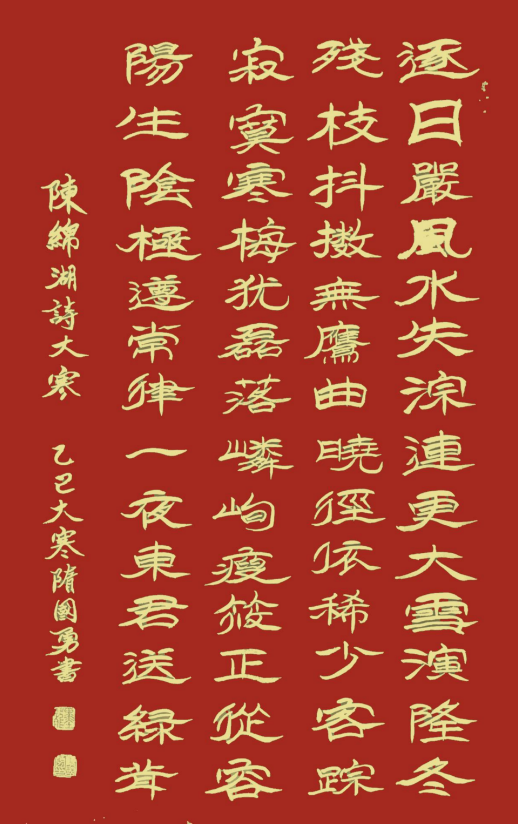 逐日嚴風水失淙連更大雪演隆冬
殘枝抖擻無鷹曲曉徑依稀少客踪
寂寞寒梅犹磊落嶙峋瘦筱正從容
陽生陰極遵常律一夜東君送緑茸
陳綿湖詩大寒 乙巳大寒隋國勇書